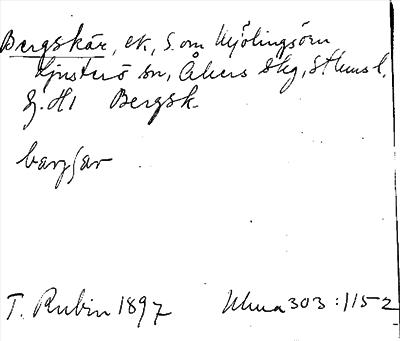 Bergskär, ek, S. om Mjölingsörn
Ljusterö sn, Åkers skg, Sthms l.
g. H1 Bergsk.
bærʃær
T. Rubin 1897 Ulma 303:1152